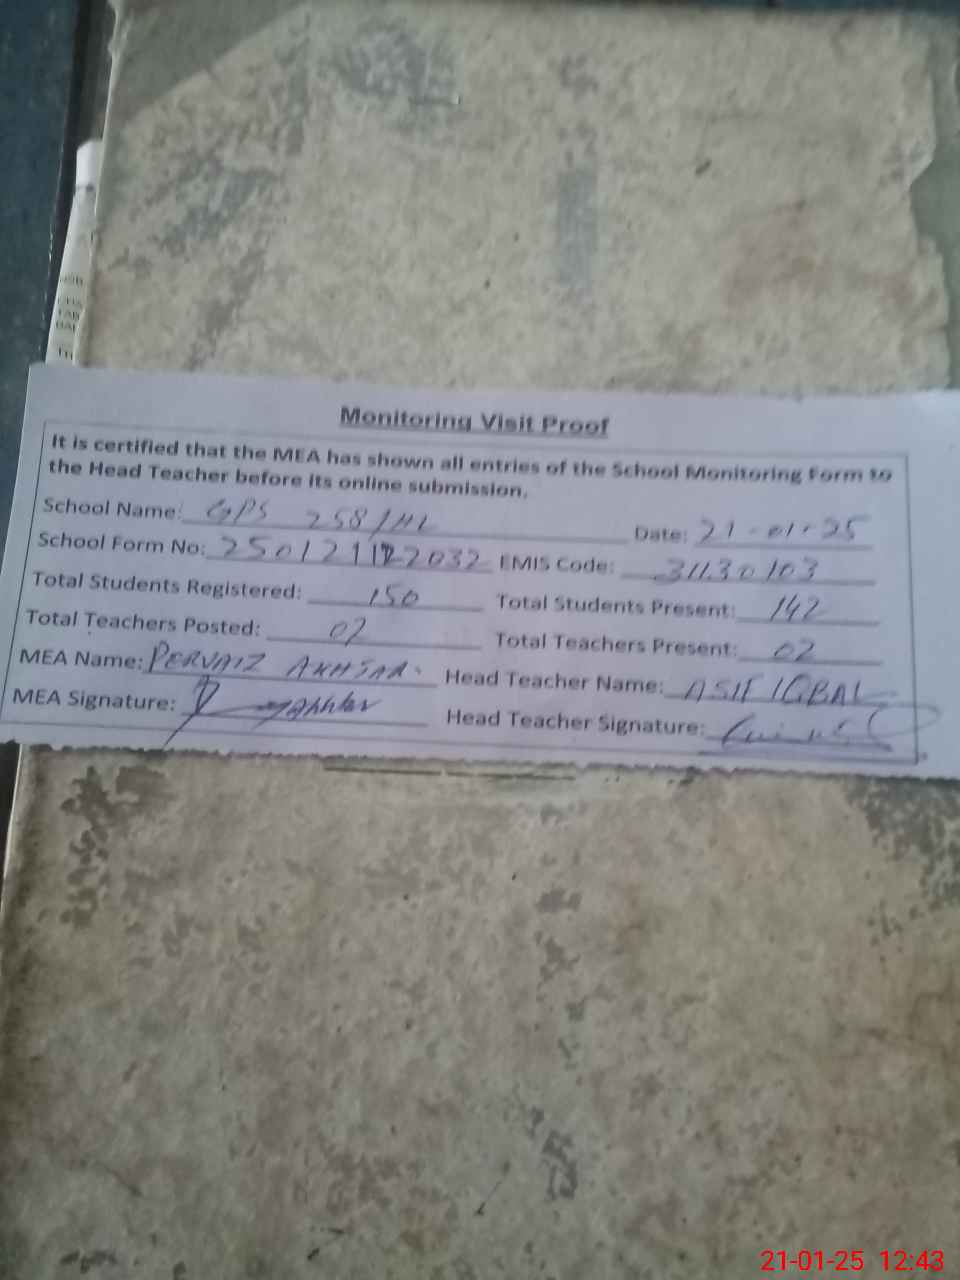 Monitoring Visit Proof
It is certified that the MEA has shown all entries of the School Monitoring Form to
the Head Teacher before its online submission.
School Name: GPS 258/HL Date: 21-01-25
School Form No: EMIS Code: 31130103
Total Students Registered: 150 Total Students Present: 142
Total Teachers Posted: 02 Total Teachers Present: 02
MEA Name: PERVAIZ AKHTAR Head Teacher Name: ASIF IQBAL
MEA Signature: Head Teacher Signature:
21-01-25 12:43